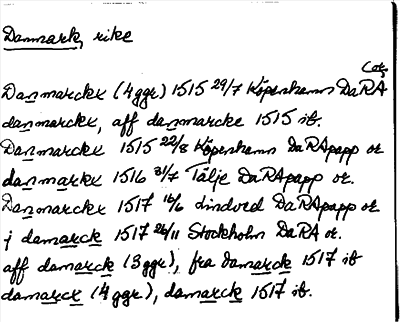 Danmark, rike
Danmarckx (4 ggr) 1515 29/7 Köpenhamn DaRA
danmarckx, aff danmarcke 1515 ib.
Danmarckx 1515 22/8 Köpenhamn DaRApapp or
danmarckx 1516 31/7 Tälje DaRApapp or.
Danmarckx 1517 16/6 DaRApapp or
j damarck 1517 26/11 Stockholm DaRA or.
aff damarck (3 ggr), fra damarck 1517 ib
damarcx (4 ggr), damarck 1517 ib.